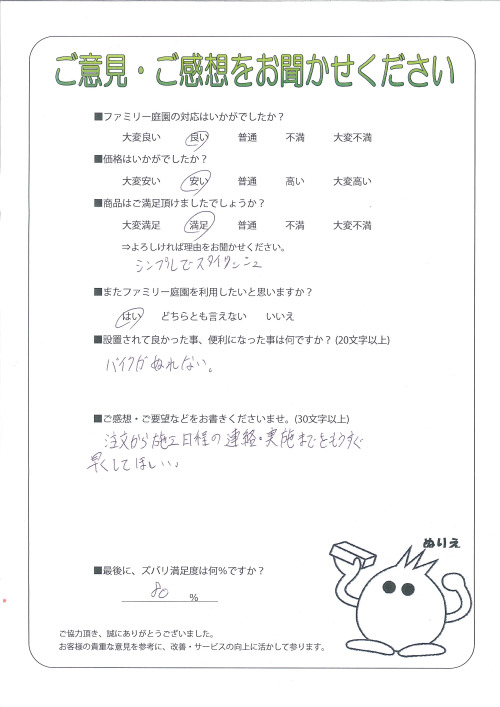 ご意見・ご感想をお聞かせください
■ファミリー庭園の対応はいかがでしたか？
大変良い 良い 普通 不満 大変不満
■価格はいかがでしたか？
大変安い 安い 普通 高い 大変高い
■商品はご満足頂けましたでしょうか？
大変満足 満足 普通 不満 大変不満
⇒よろしければ理由をお聞かせください。
シンプルでスタイリッシュ
■またファミリー庭園を利用したいと思いますか？
はい どちらとも言えない いいえ
■設置されて良かった事、便利になった事は何ですか？(20文字以上)
バイクがぬれない。
■ご感想・ご要望などをお書きくださいませ。(30文字以上)
注文から施工日程の連絡・実施までをもうすぐ
早くしてほしい。
ぬりえ
■最後に、ズバリ満足度は何％ですか？
80 %
ご協力頂き、誠にありがとうございました。
お客様の貴重な意見を参考に、改善・サービスの向上に活かして参ります。